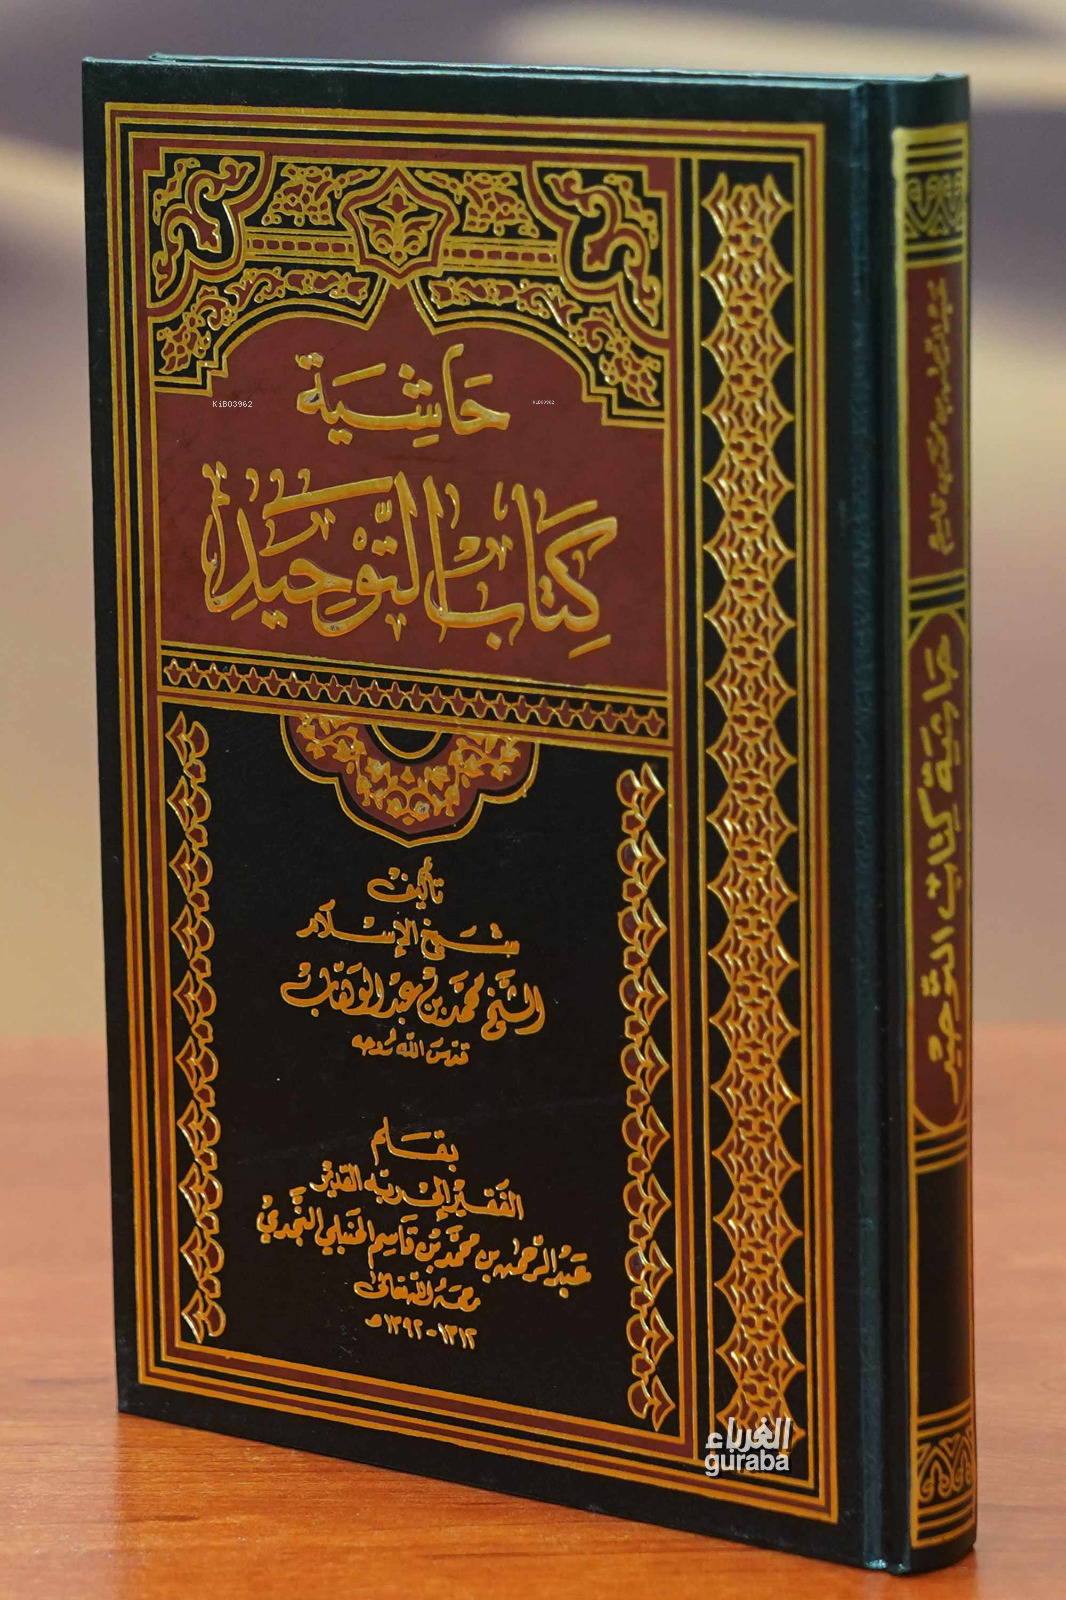 حَاشِيَة
كِتَابُ التَّوْحِيدِ
KiB03962
KiB03962
تأليف
شيخ الإسلام
الشيخ محمد بن عبد الوهّاب
قدّس الله روحه
بقلم
الفقير إلى ربه القدير
عبد الرحمن بن محمد بن قاسم الحنبلي النجدي
رحمه الله تعالى
١٣١٢-١٣٩٢هـ
حاشية كتاب التوحيد
الغرباء
guraba